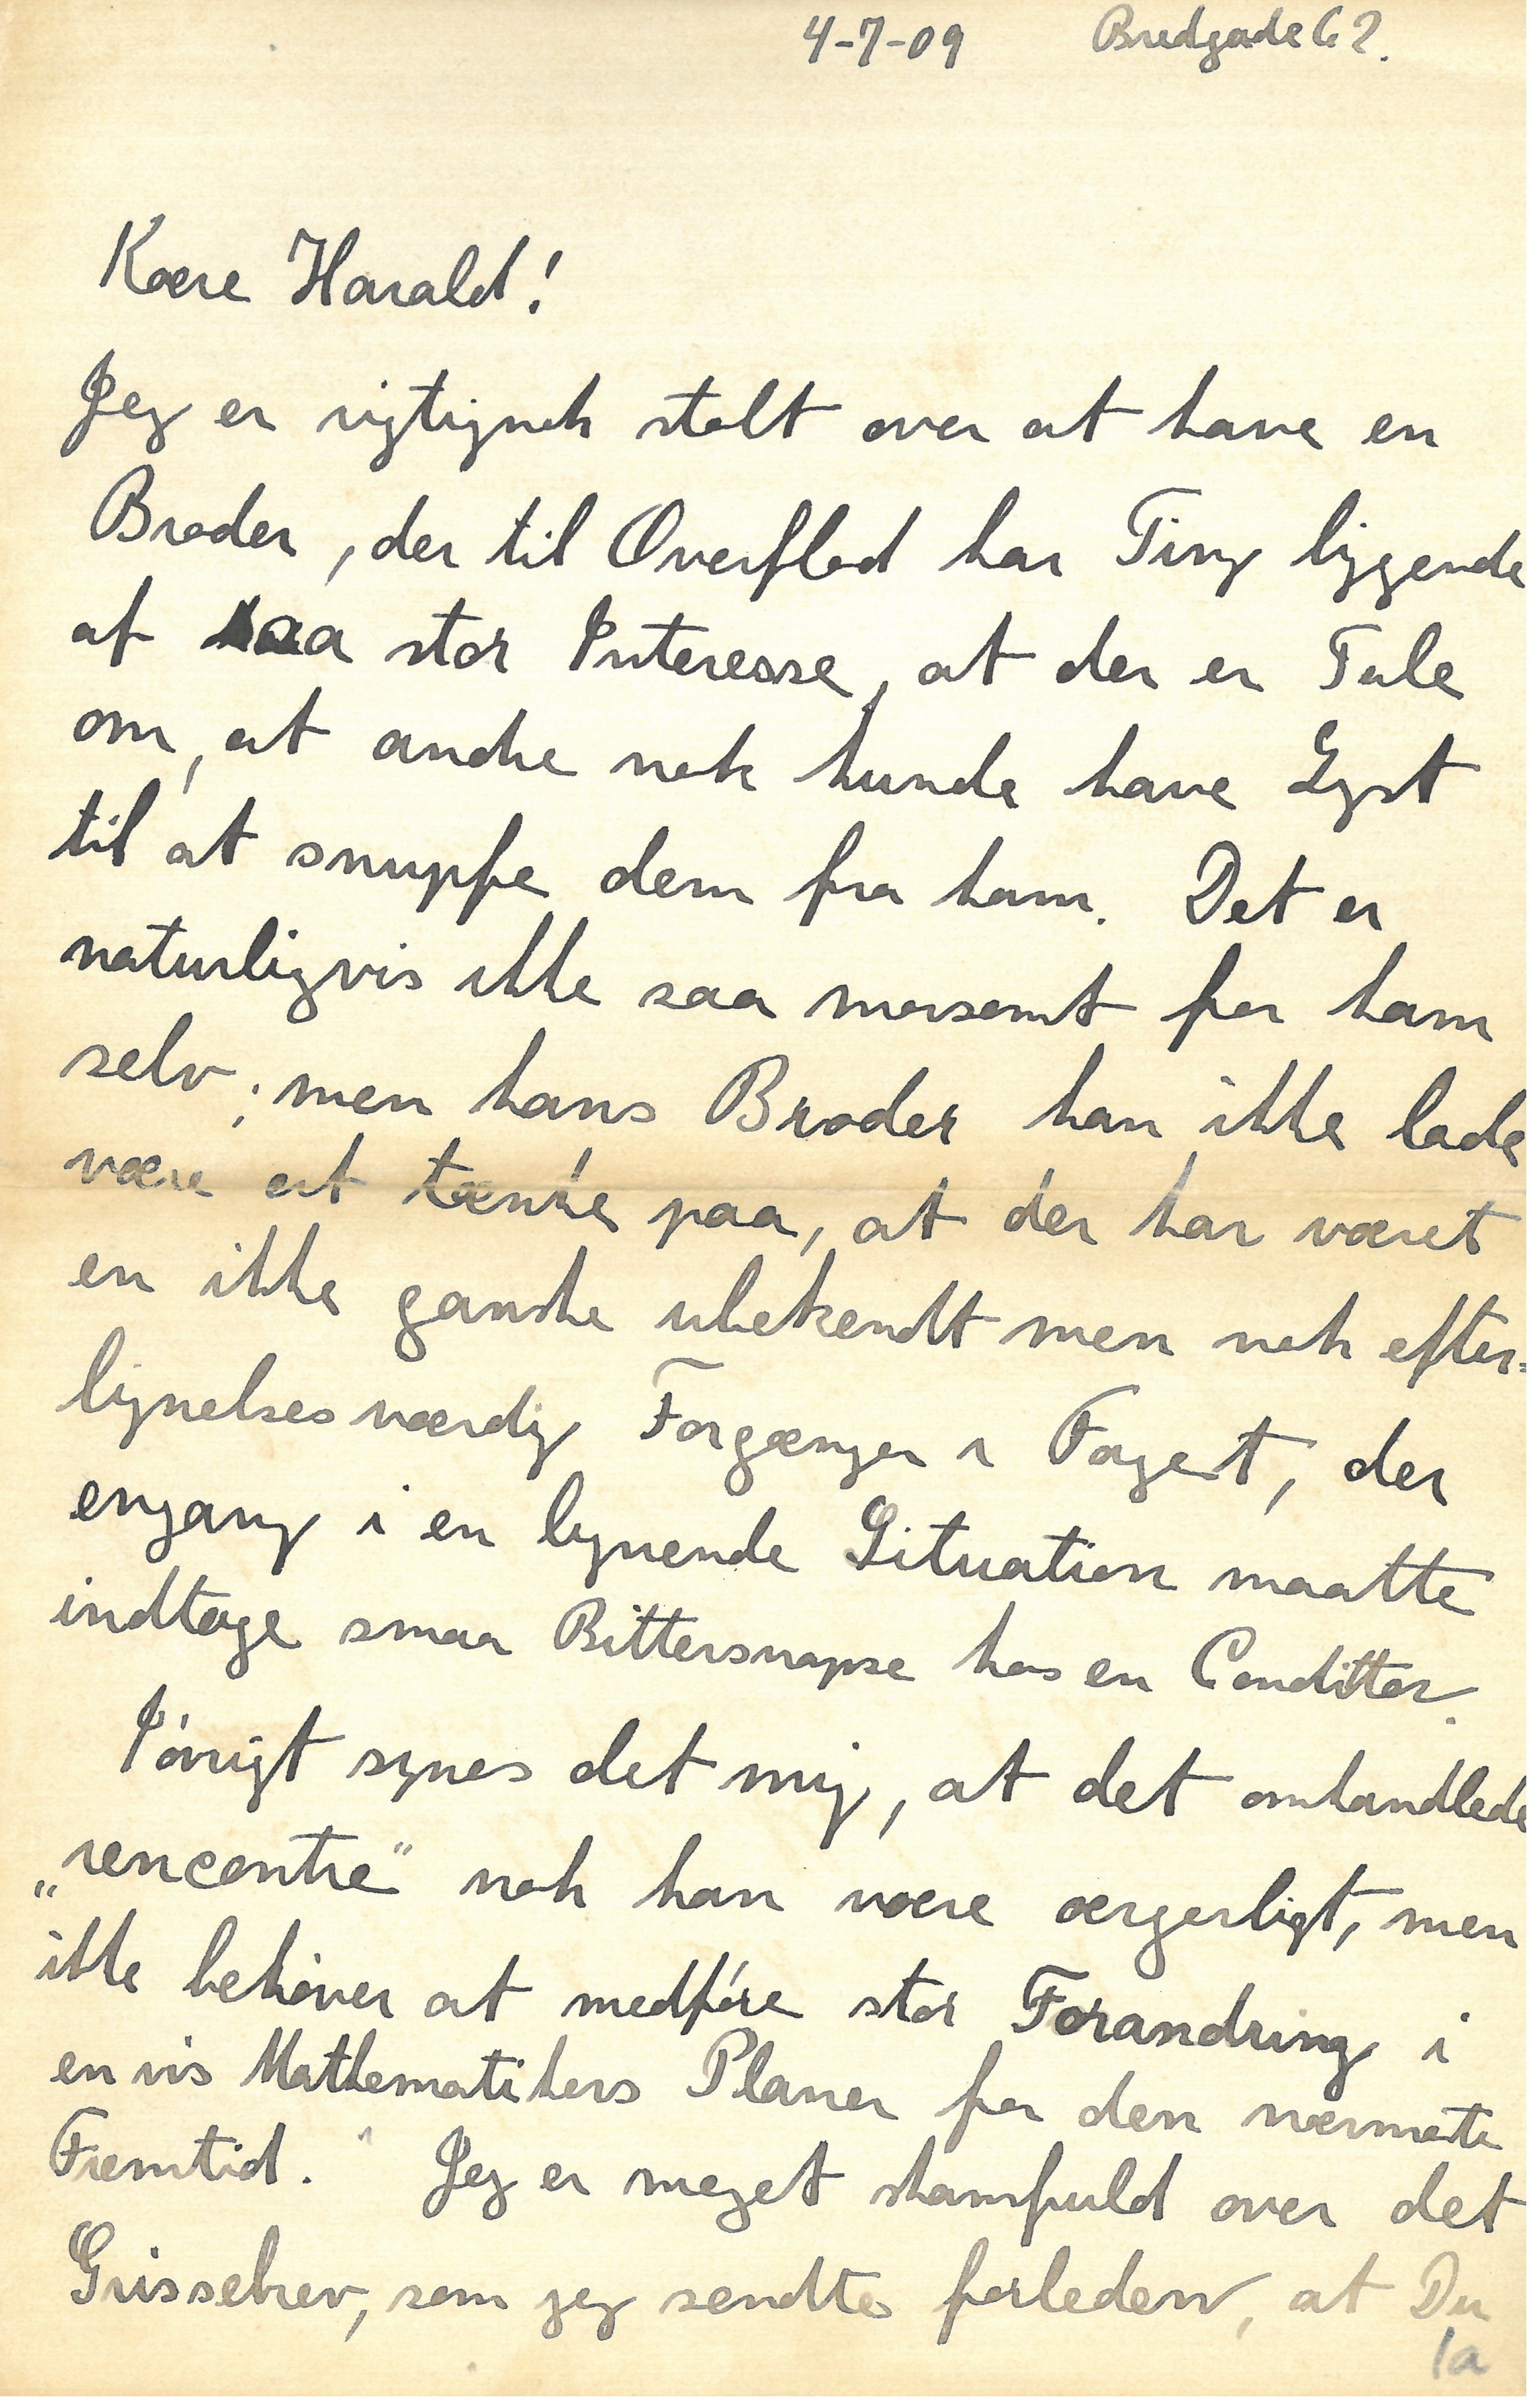 4-7-09 Bredgade 62.
Kære Harald!
Jeg er rigtignok stolt over at have en
Broder, der til Overflod har Ting liggende
af saa stor Interesse, at der er Tale
om, at andre nok kunde have Lyst
til at snuppe dem fra ham. Det er
naturligvis ikke saa morsomt for ham
selv; men hans Broder kan ikke lade
være at tænke paa, at der har været
en ikke ganske ubekendt men nok efter=
lignelsesværdig Forgænger i Faget, der
engang i en lignende Situation maatte
indtage smaa Bittersnapse hos en Conditter.
Iövrigt synes det mig, at det omhandlede
„rencontre” nok kan være ærgerligt, men
ikke behöver at medföre stor Forandring i
en vis Mathematikers Planer for den nærmeste
Fremtid. Jeg er meget skamfuld over det
Grissebrev, som jeg sendte forleden, at Du
1a